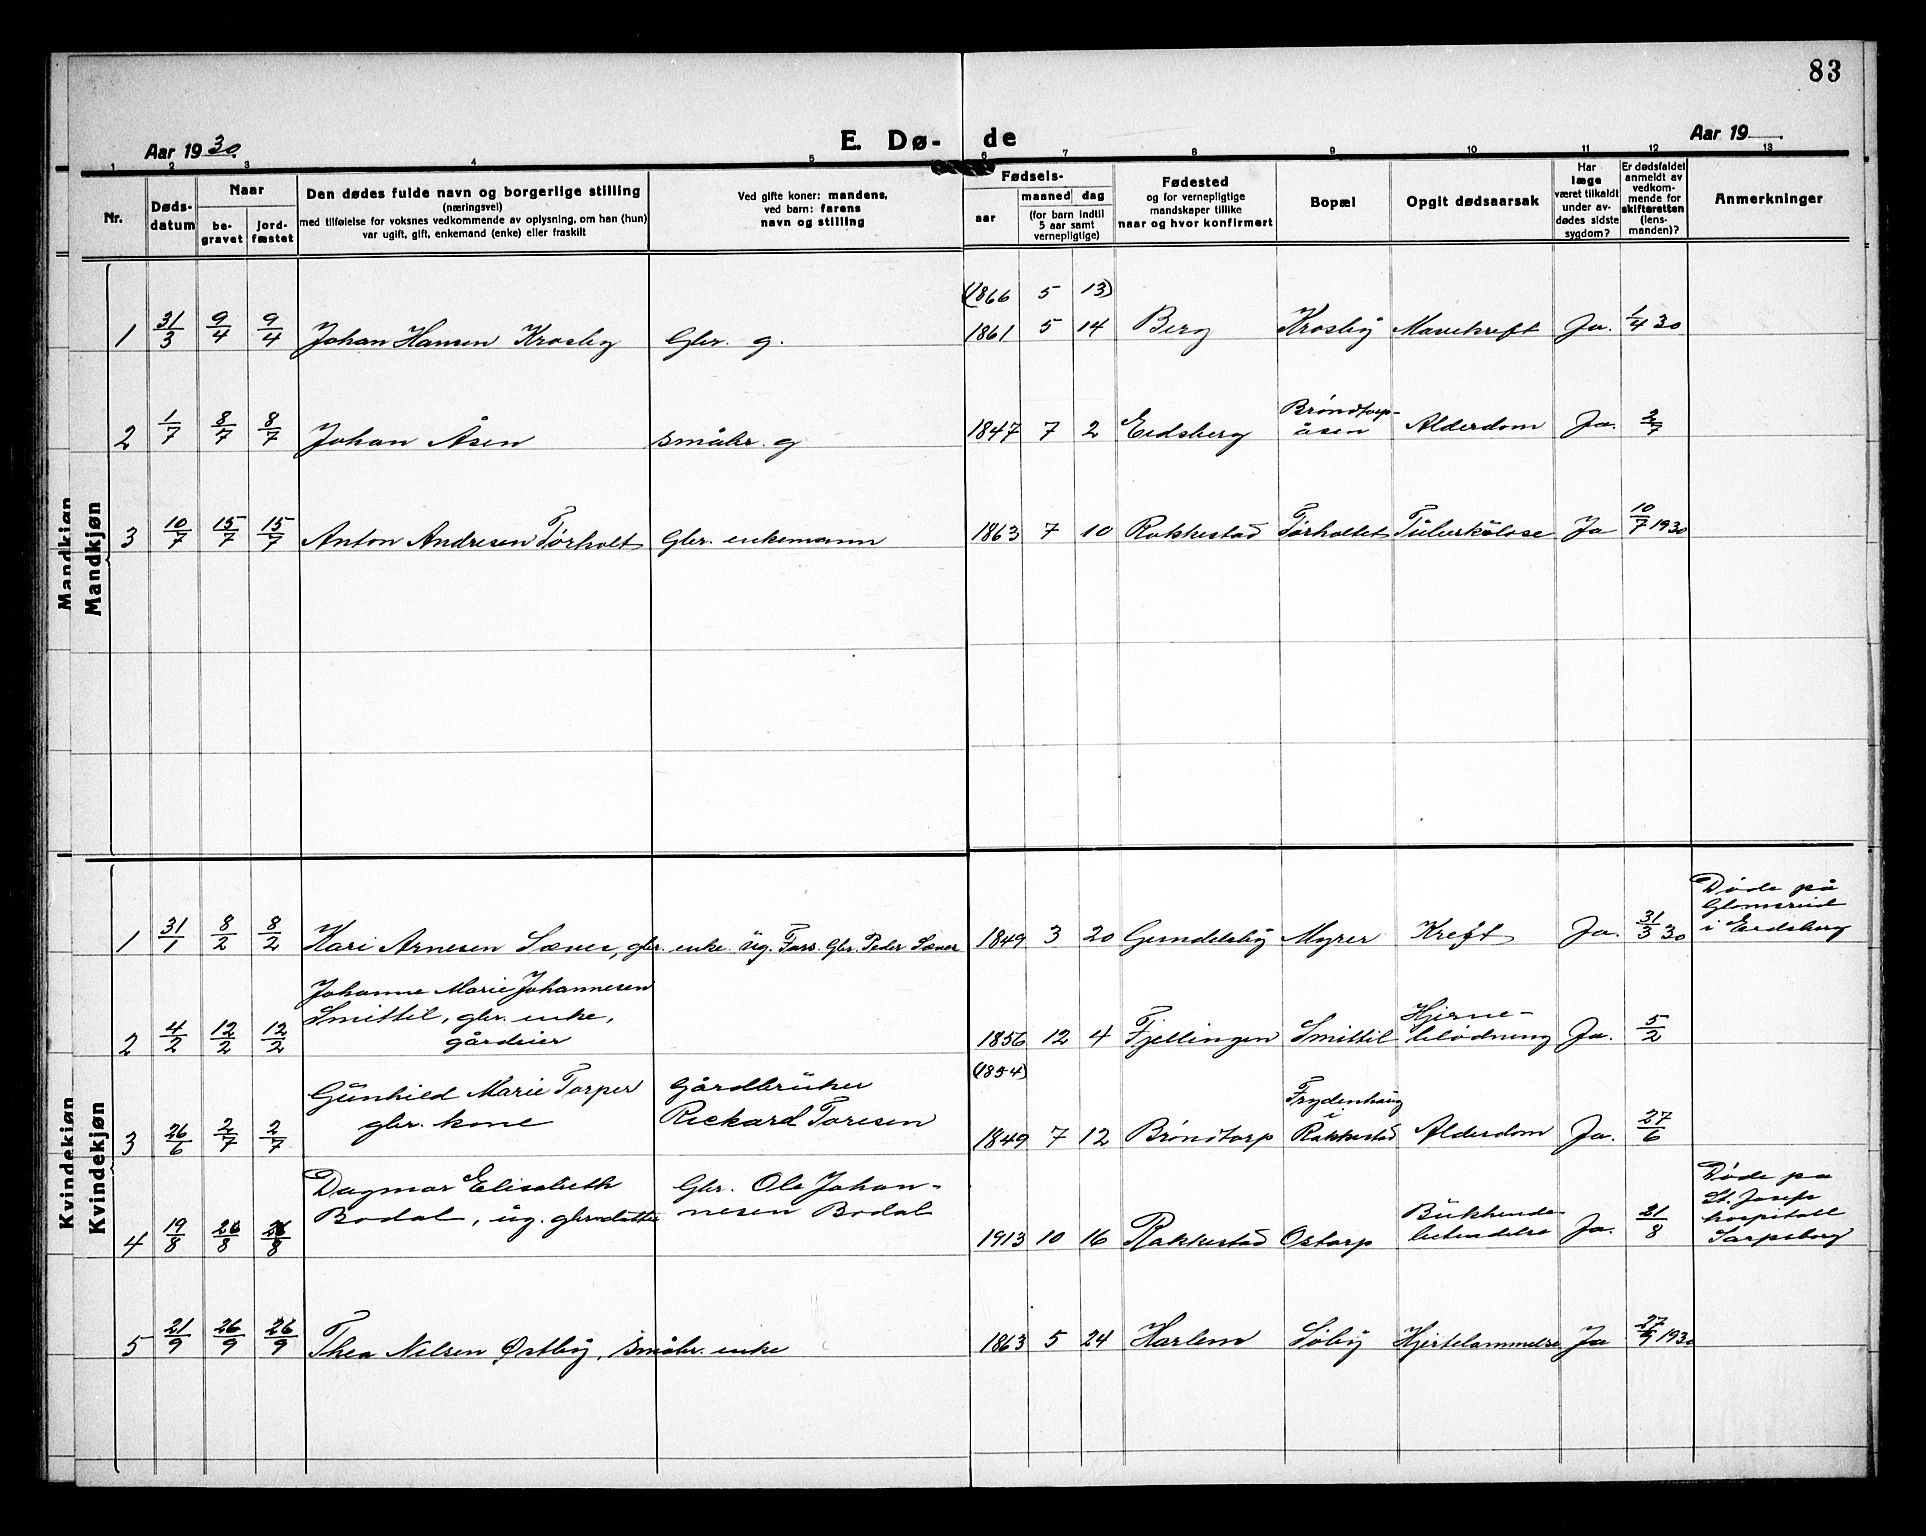 83
Aar 1930.
E. Dø-de
Aar 19
1 2 3 4 5 6 7 8 9 10 11 12 13
Nr.
Døds-
datum
Naar
be-
gravet
jord-
fæstet
Den dødes fulde navn og borgerlige stilling
(næringsvei)
med tilføielse for voksnes vedkommende av oplysning, om han (hun)
var ugift, gift, enkemand (enke) eller fraskilt
Ved gifte koner: mandens,
ved barn: farens
navn og stilling
Fødsels-
aar
maaned dag
(for barn indtil
5 aar samt
vernepligtige)
Fødested
og for vernepligtige
mandskaper tillike
naar og hvor konfirmert
Bopæl
Opgit dødsaarsak
Har
læge
været tilkaldt
under av-
dødes sidste
sygdom?
Er dødsfaldet
anmeldt av
vedkom-
mende for
skifteretten
(lens-
manden)?
Anmerkninger
Mandkjøn
(1866 5 13)
1 31/3 9/4 9/4 Johan Hansen Krosby Gbr. g. 1861 5 14 Berg Krosby Mavekreft Ja. 1/4 30
Bröndtorp-
2 1/7 8/7 8/7 Johan Åsen småbr. g 1847 7 2 Eidsberg åsen Alderdom Ja. 2/7
3 10/7 15/7 15/7 Anton Andresen Tørholt Gbr. enkemann 1863 7 10 Rakkestad Tørholtet Tuberkulose Ja 10/7 1930
Kvindekjøn
1 31/1 8/2 8/2 Kari Arnesen Sæves, gbr. enke. Ug. Fars. Gbr. Peder Sæves 1849 3 20 Gundelsby Myrer Kreft Ja. 31/3 30
Døde på
Glomsrud
i Eidsberg
Johanne Marie Johannesen
Smittil, gbr. enke,
2 4/2 12/2 12/2 gårdeier 1856 12 4 Fjellingen Smittil Hjerne-
blødning Ja. 5/2
(1854)
Gunhild Marie Torper
gbr. kone
Gårdbruker
Rickard Toresen
3 26/6 2/7 2/7 1849 7 12 Brøndtorp Frydenhaug
i
Rakkestad Alderdom Ja. 27/6
Dagmar Elisabeth
Bodal, ug. gbr.datter
Gbr. Ole Johan-
nesen Bodal
4 19/8 26/8 26/8 1913 10 16 Rakkestad Ostorp Bukhinde-
betendelse Ja. 21/8
Døde på
St. Josefs
hospitall
Sarpsborg
5 21/9 26/9 26/9 Thea Nilsen Østby, småbr. enke 1863 5 24 Harlem Søby Hjertelammelse Ja 27/9 1930